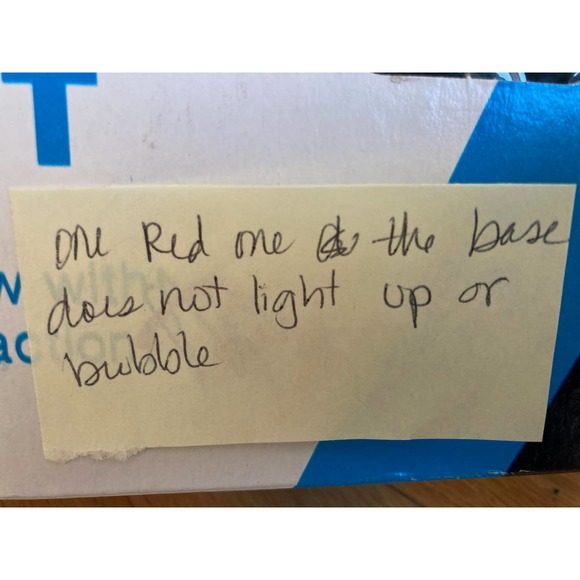 T
one Red one the base
does not light up or
bubble
w with
action